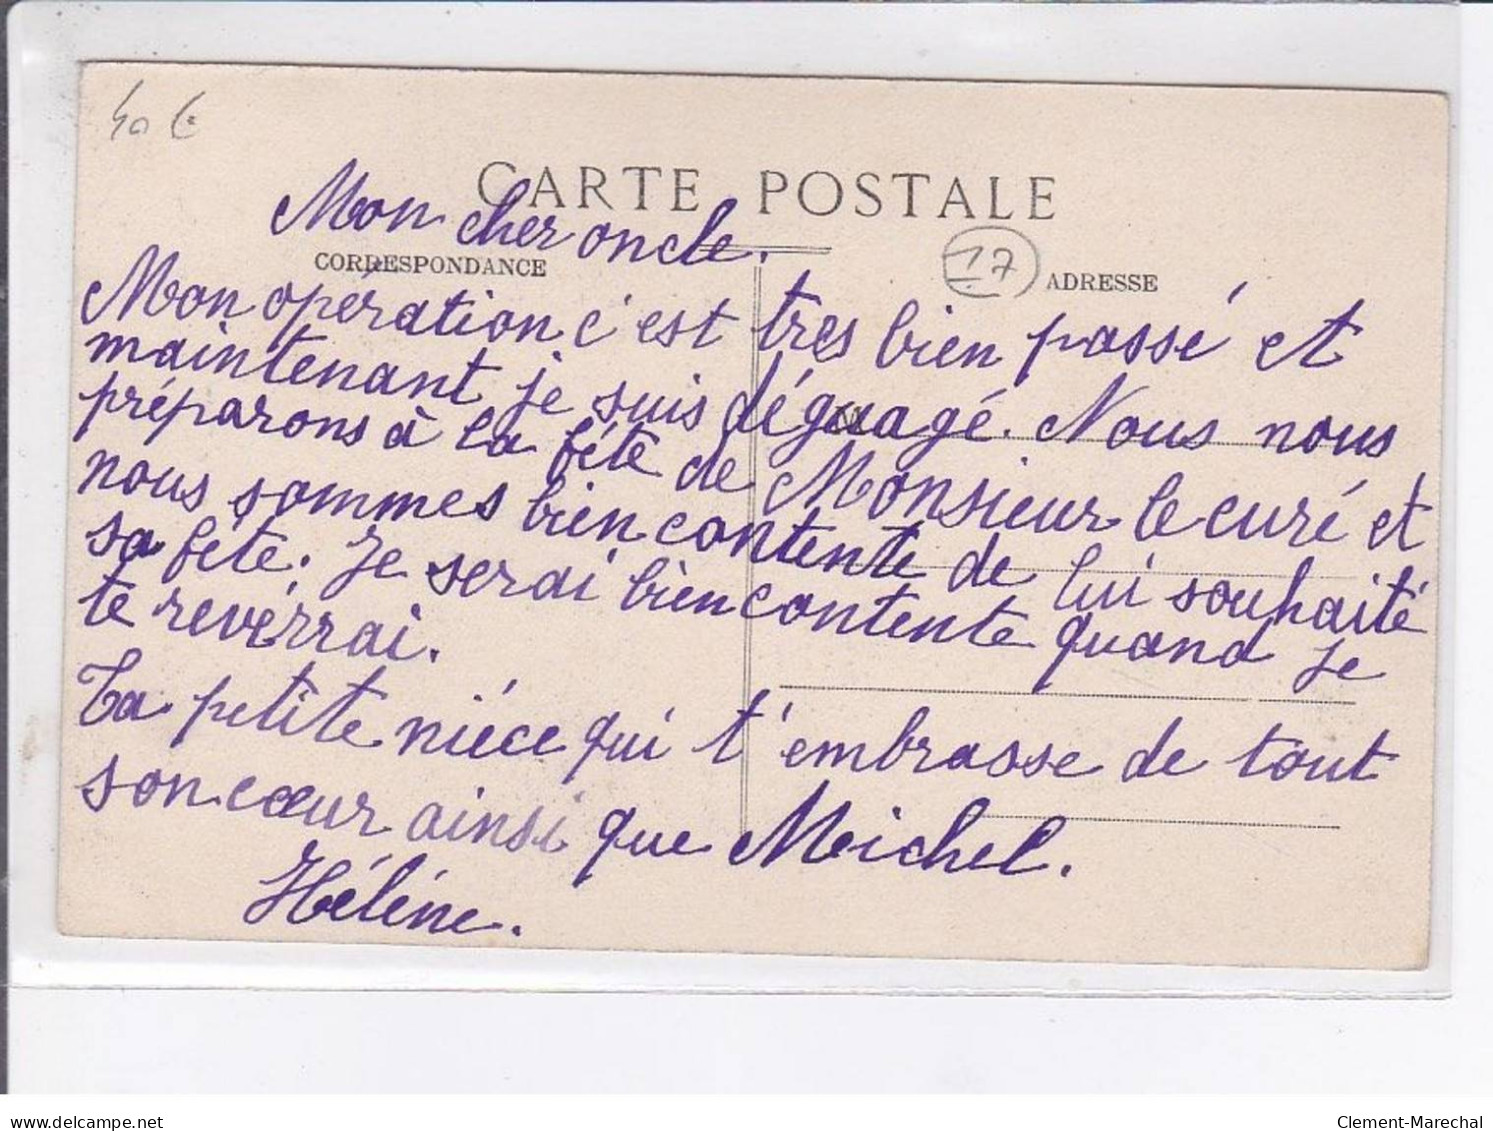 40 €
CARTE POSTALE
Mon cher oncle.
CORRESPONDANCE
17
ADRESSE
Mon opération c'est tres bien passé et
maintenant je suis déguagé. Nous nous
préparons à la fête de Monsieur le curé et
nous sommes bien contente de lui souhaité
sa fête. Je serai bien contente quand je
te revérrai.
Ta petite niéce qui t'embrasse de tout
son cœur ainsi que Michel.
Hélène.
delcampe.net
Clement-Marechal